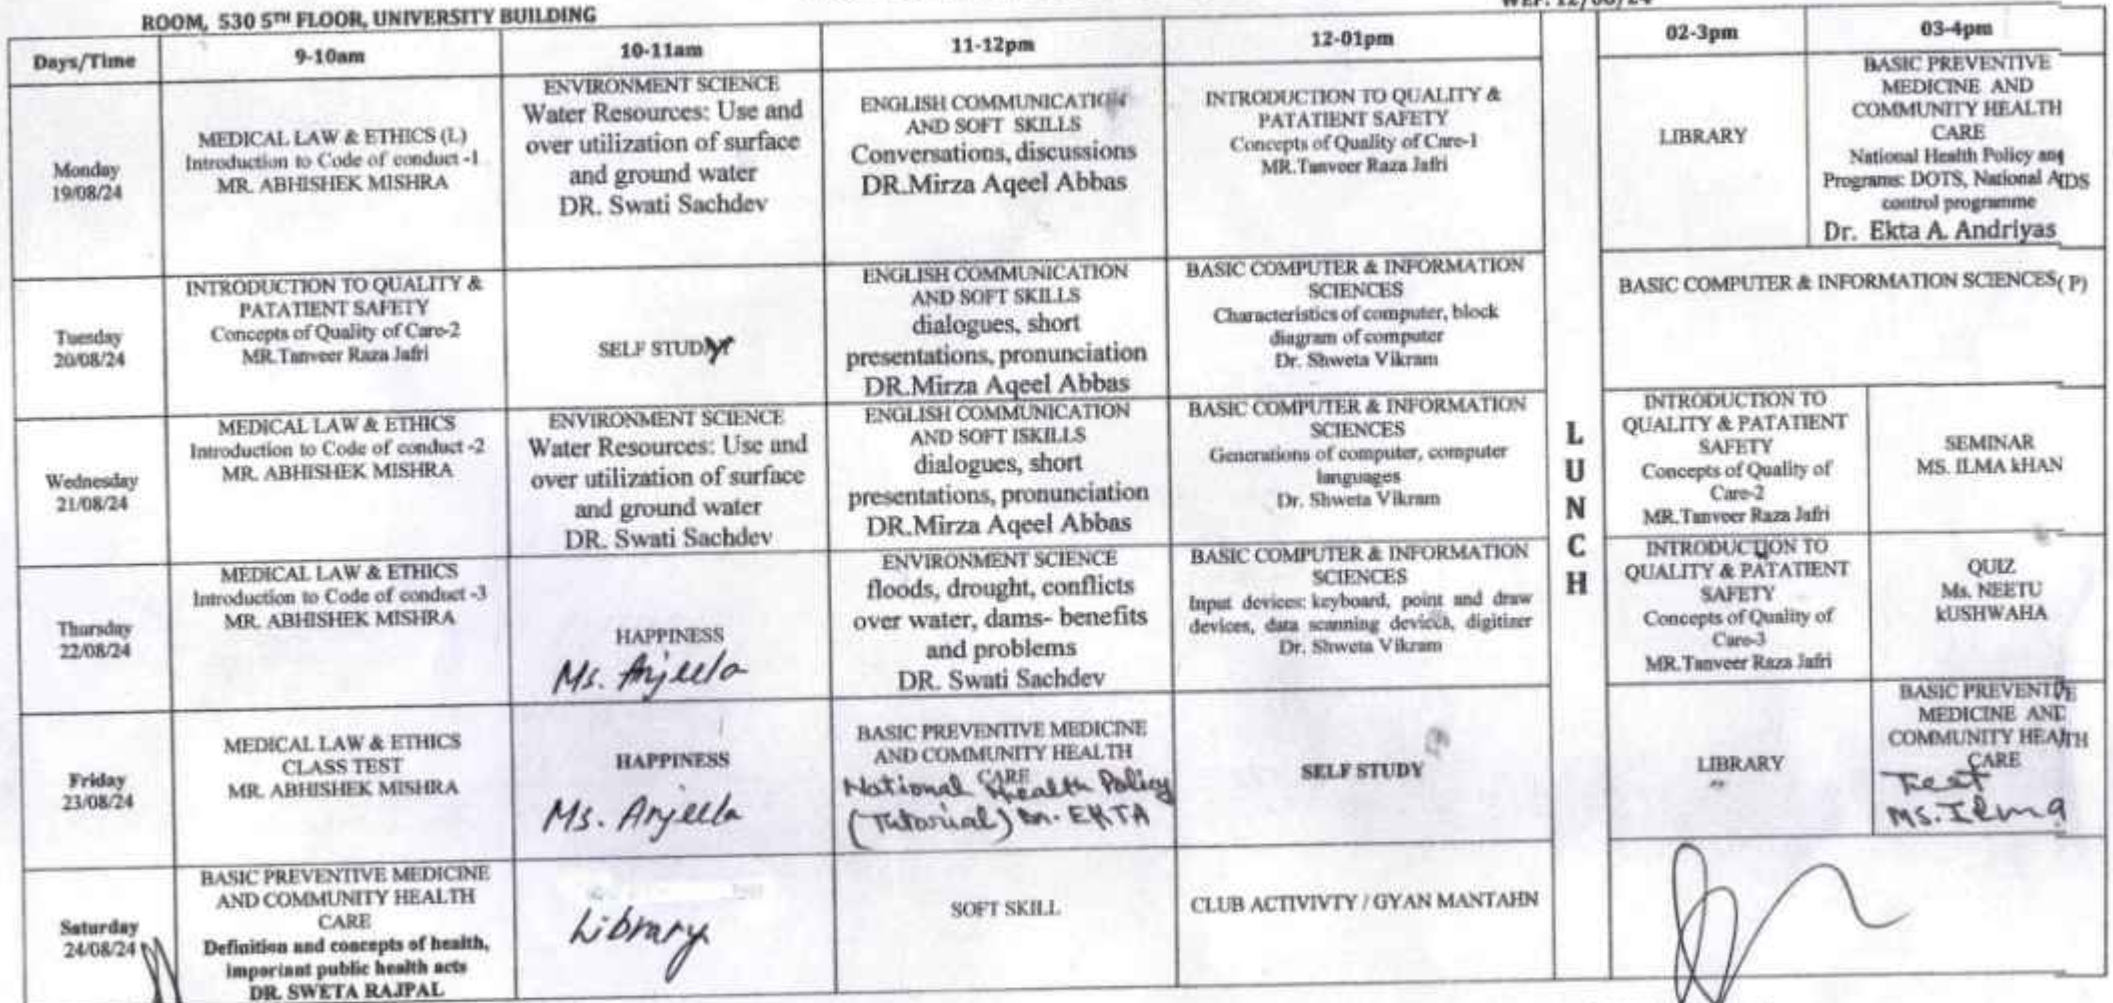 ROOM, 530 5TH FLOOR, UNIVERSITY BUILDING
Days/Time
9-10am
10-11am
11-12pm
12-01pm
02-3pm
03-4pm
Monday
19/08/24
MEDICAL LAW & ETHICS (L)
Introduction to Code of conduct -1
MR. ABHISHEK MISHRA
ENVIRONMENT SCIENCE
Water Resources: Use and
over utilization of surface
and ground water
DR. Swati Sachdev
ENGLISH COMMUNICATION
AND SOFT SKILLS
Conversations, discussions
DR.Mirza Aqeel Abbas
INTRODUCTION TO QUALITY &
PATATIENT SAFETY
Concepts of Quality of Care-1
MR.Tanveer Raza Jafri
LUNCH
LIBRARY
BASIC PREVENTIVE
MEDICINE AND
COMMUNITY HEALTH
CARE
National Health Policy and
Programs: DOTS, National AIDS
control programme
Dr. Ekta A. Andriyas
Tuesday
20/08/24
INTRODUCTION TO QUALITY &
PATATIENT SAFETY
Concepts of Quality of Care-2
MR.Tanveer Raza Jafri
SELF STUDY
ENGLISH COMMUNICATION
AND SOFT SKILLS
dialogues, short
presentations, pronunciation
DR.Mirza Aqeel Abbas
BASIC COMPUTER & INFORMATION
SCIENCES
Characteristics of computer, block
diagram of computer
Dr. Shweta Vikram
BASIC COMPUTER & INFORMATION SCIENCES( P)
Wednesday
21/08/24
MEDICAL LAW & ETHICS
Introduction to Code of conduct -2
MR. ABHISHEK MISHRA
ENVIRONMENT SCIENCE
Water Resources: Use and
over utilization of surface
and ground water
DR. Swati Sachdev
ENGLISH COMMUNICATION
AND SOFT ISKILLS
dialogues, short
presentations, pronunciation
DR.Mirza Aqeel Abbas
BASIC COMPUTER & INFORMATION
SCIENCES
Generations of computer, computer
languages
Dr. Shweta Vikram
INTRODUCTION TO
QUALITY & PATATIENT
SAFETY
Concepts of Quality of
Care-2
MR.Tanveer Raza Jafri
SEMINAR
MS. ILMA kHAN
Thursday
22/08/24
MEDICAL LAW & ETHICS
Introduction to Code of conduct -3
MR. ABHISHEK MISHRA
HAPPINESS
Ms. Anjeela
ENVIRONMENT SCIENCE
floods, drought, conflicts
over water, dams- benefits
and problems
DR. Swati Sachdev
BASIC COMPUTER & INFORMATION
SCIENCES
Input devices: keyboard, point and draw
devices, data scanning devices, digitizer
Dr. Shweta Vikram
INTRODUCTION TO
QUALITY & PATATIENT
SAFETY
Concepts of Quality of
Care-3
MR.Tanveer Raza Jafri
QUIZ
Ms. NEETU
kUSHWAHA
Friday
23/08/24
MEDICAL LAW & ETHICS
CLASS TEST
MR. ABHISHEK MISHRA
HAPPINESS
Ms. Anjeela
BASIC PREVENTIVE MEDICINE
AND COMMUNITY HEALTH
CARE
National Health Policy
(Tutorial) Dr. EKTA
SELF STUDY
LIBRARY
BASIC PREVENTIVE
MEDICINE AND
COMMUNITY HEALTH
CARE
Test
MS. Ilma
Saturday
24/08/24
BASIC PREVENTIVE MEDICINE
AND COMMUNITY HEALTH
CARE
Definition and concepts of health,
important public health acts
DR. SWETA RAJPAL
Library
SOFT SKILL
CLUB ACTIVIVTY / GYAN MANTAHN